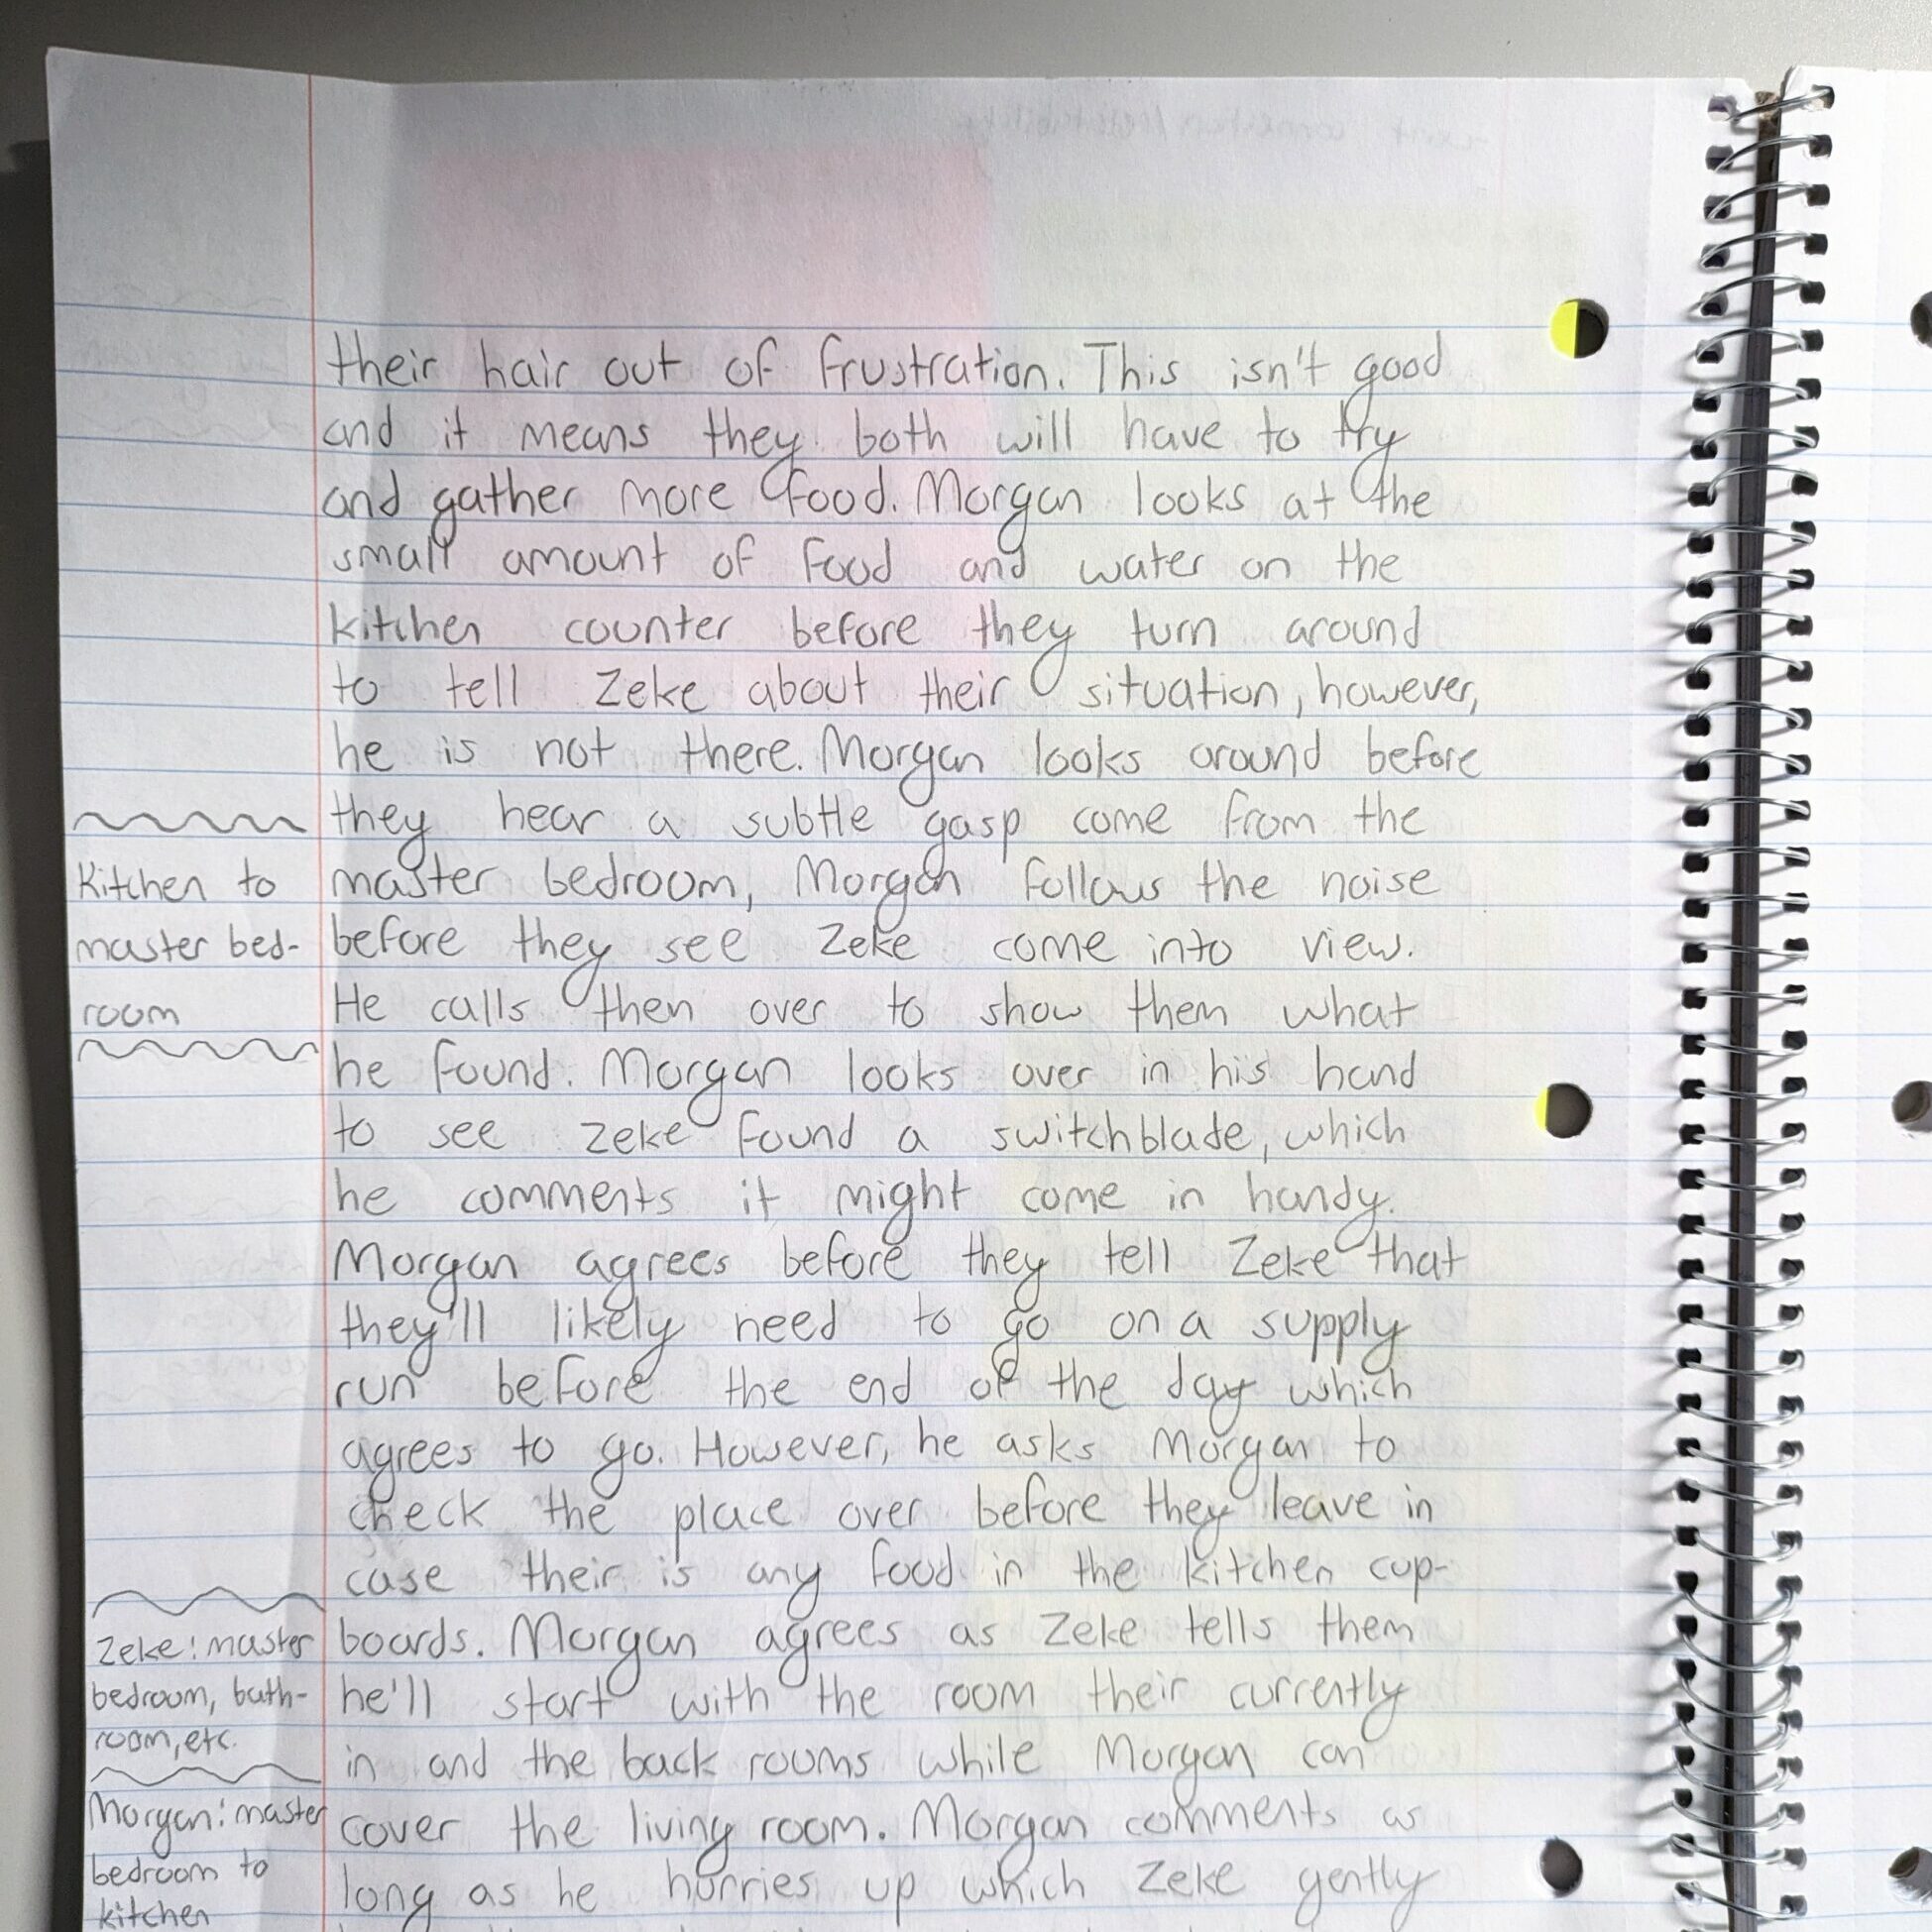 their hair out of frustration. This isn't good
and it means they both will have to try
and gather more food. Morgan looks at the
small amount of food and water on the
kitchen counter before they turn around
to tell Zeke about their situation, however,
he is not there. Morgan looks around before
they hear a subtle gasp come from the
Kitchen to
master bedroom, Morgan follows the noise
master bed-
before they see Zeke come into view.
room
He calls then over to show them what
he found. Morgan looks over in his hand
to see Zeke found a switchblade, which
he comments it might come in handy.
Morgan agrees before they tell Zeke that
they'll likely need to go on a supply
run before the end of the day which
agrees to go. However, he asks Morgan to
check the place over before they leave in
case their is any food in the kitchen cup-
Zeke: master
boards. Morgan agrees as Zeke tells them
bedroom, bath-
he'll start with the room their currently
room, etc.
in and the back rooms while Morgan can
Morgan: master
cover the living room. Morgan comments as
bedroom to
long as he hurries up which Zeke gently
kitchen